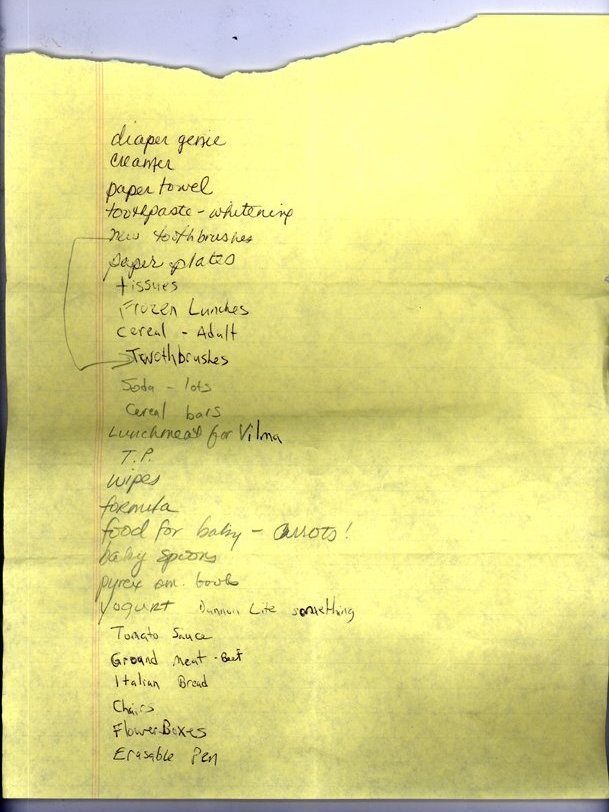 diaper genie
creamer
paper towel
toothpaste - whitening
new toothbrushes
paper plates
tissues
Frozen Lunches
Cereal - Adult
Toothbrushes
Soda - lots
Cereal bars
Lunchmeat for Vilma
T.P.
wipes
formula
food for baby - carrots!
baby spoons
pyrex sm. bowls
yogurt Dannon Lite something
Tomato Sauce
Ground meat - Beef
Italian Bread
Chairs
Flower Boxes
Erasable Pen